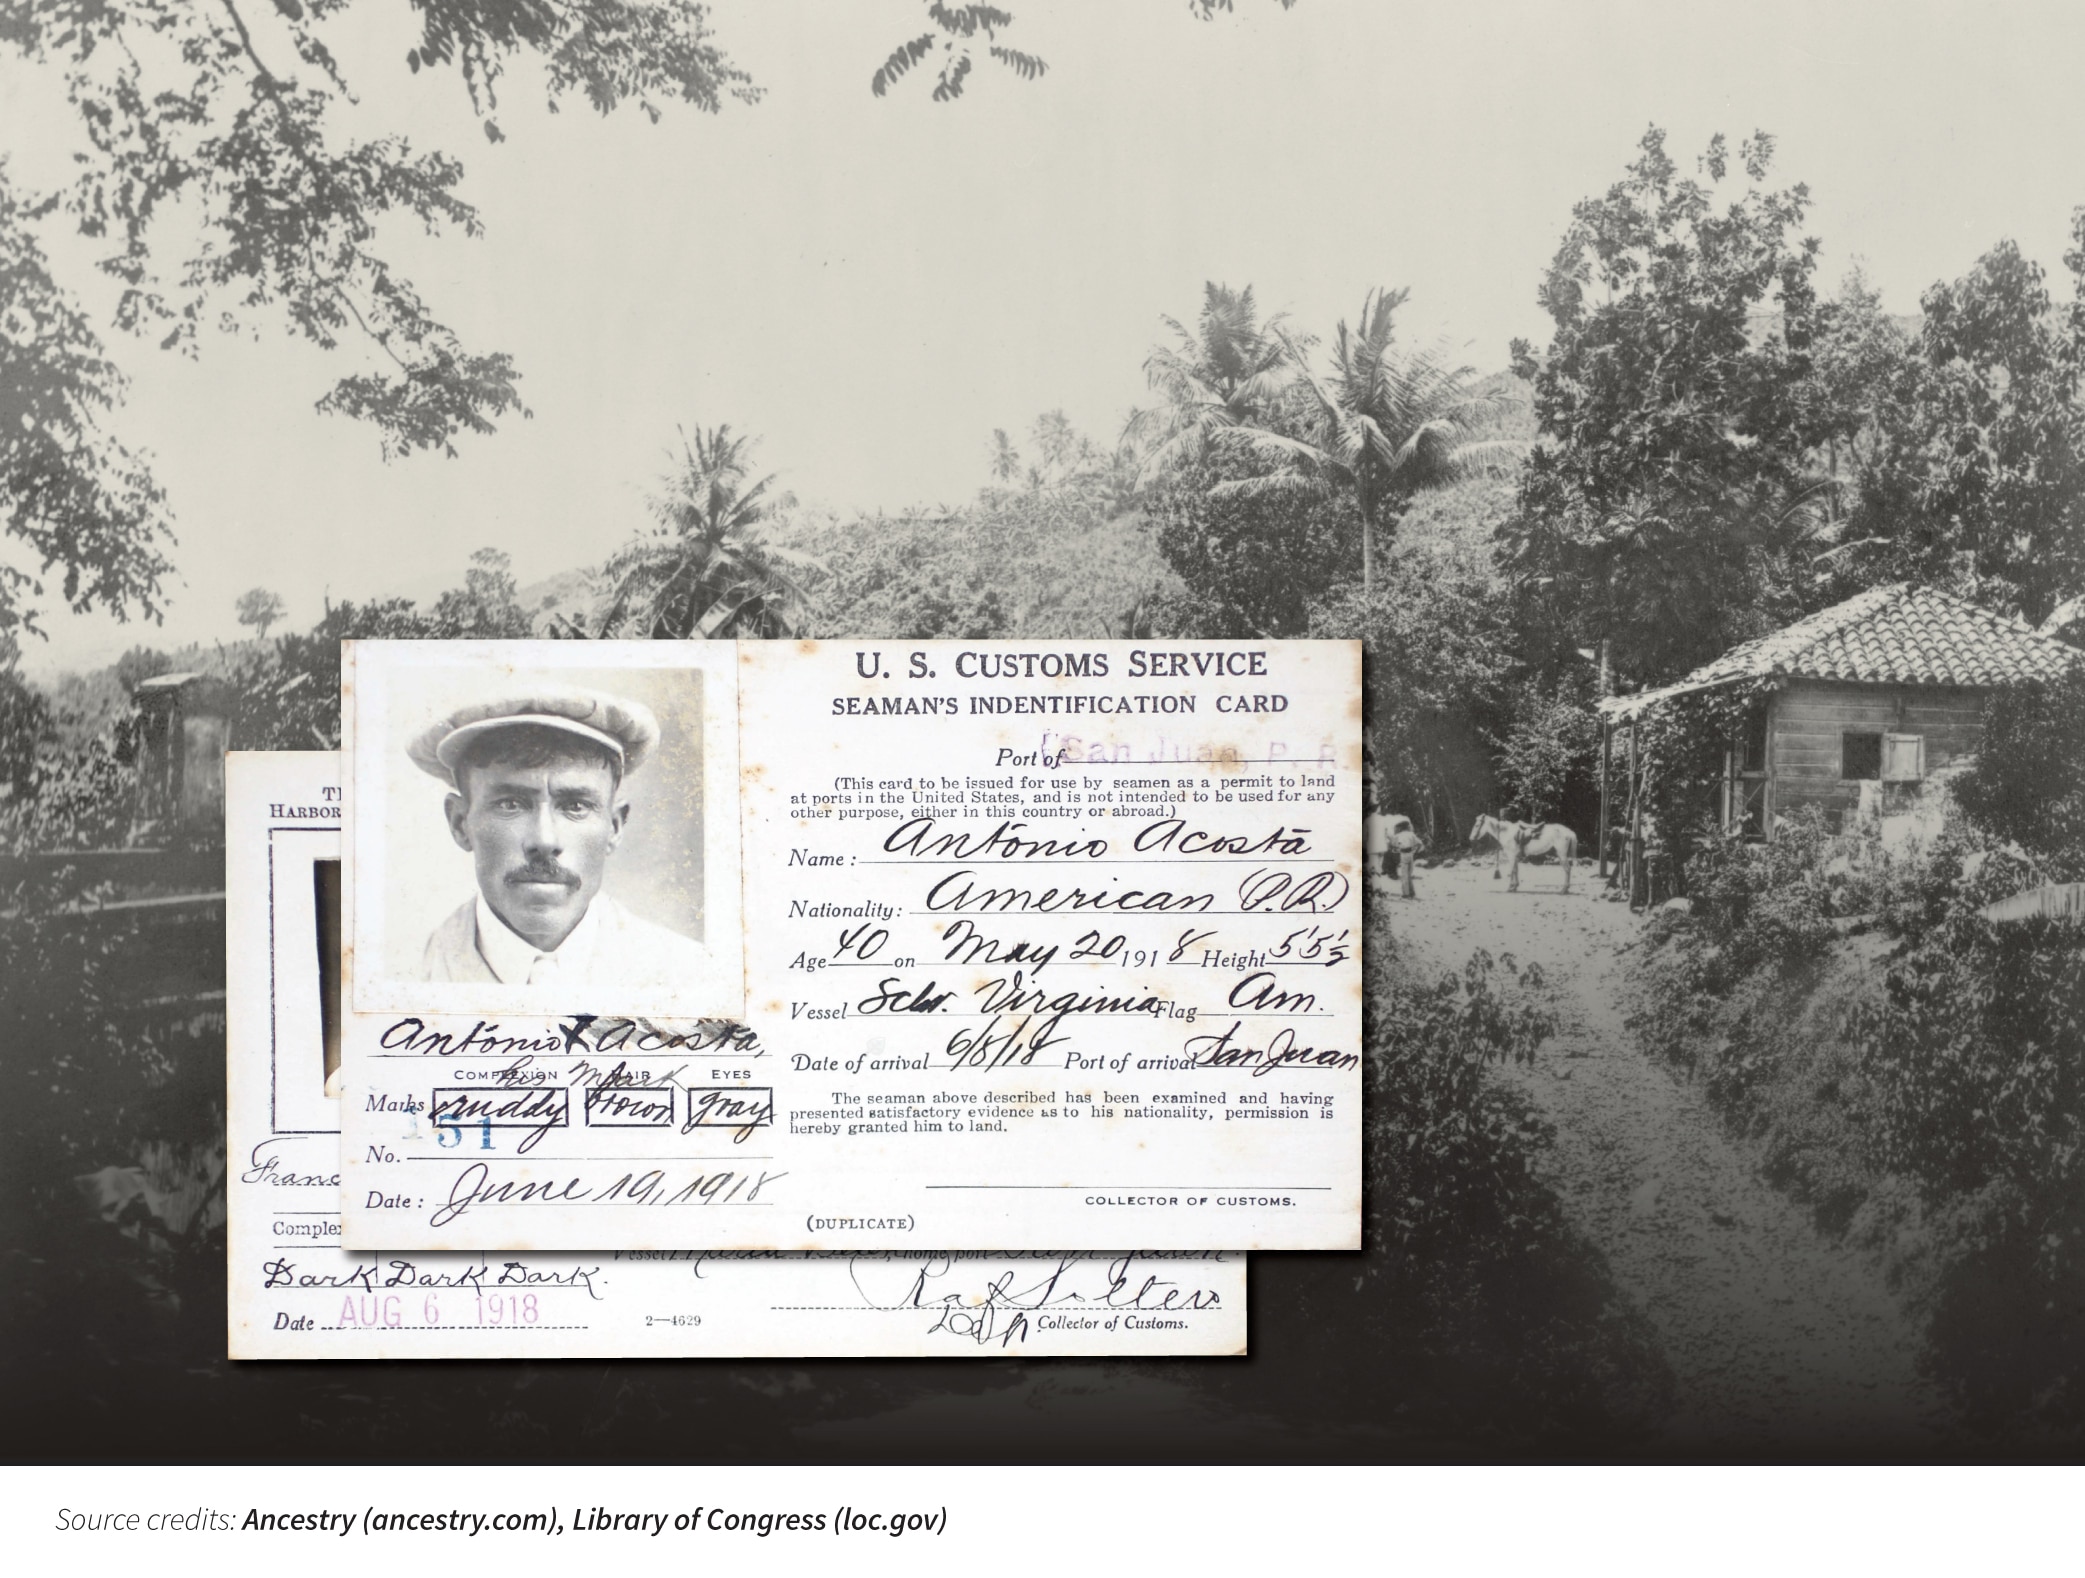 U. S. CUSTOMS SERVICE
SEAMAN'S INDENTIFICATION CARD
Port of San Juan, P. R.
(This card to be issued for use by seamen as a permit to land
at ports in the United States, and is not intended to be used for any
other purpose, either in this country or abroad.)
Name: Antonio Acosta
Nationality: American (P.R.)
Age 40 on May 20, 1918 Height 5'5½
Vessel Schr. Virginia Flag Am.
Date of arrival 6/8/18 Port of arrival San Juan
The seaman above described has been examined and having
presented satisfactory evidence as to his nationality, permission is
hereby granted him to land.
COLLECTOR OF CUSTOMS.
(DUPLICATE)
Antonio X Acosta,
his Mark
COMPLEXION HAIR EYES
Marks ruddy brown gray
No. 151
Date: June 19, 1918
HARBOR
Franc
Comple
Dark Dark Dark.
Date AUG 6 1918
2—4629
Vessel, home port
Collector of Customs.
Source credits: Ancestry (ancestry.com), Library of Congress (loc.gov)